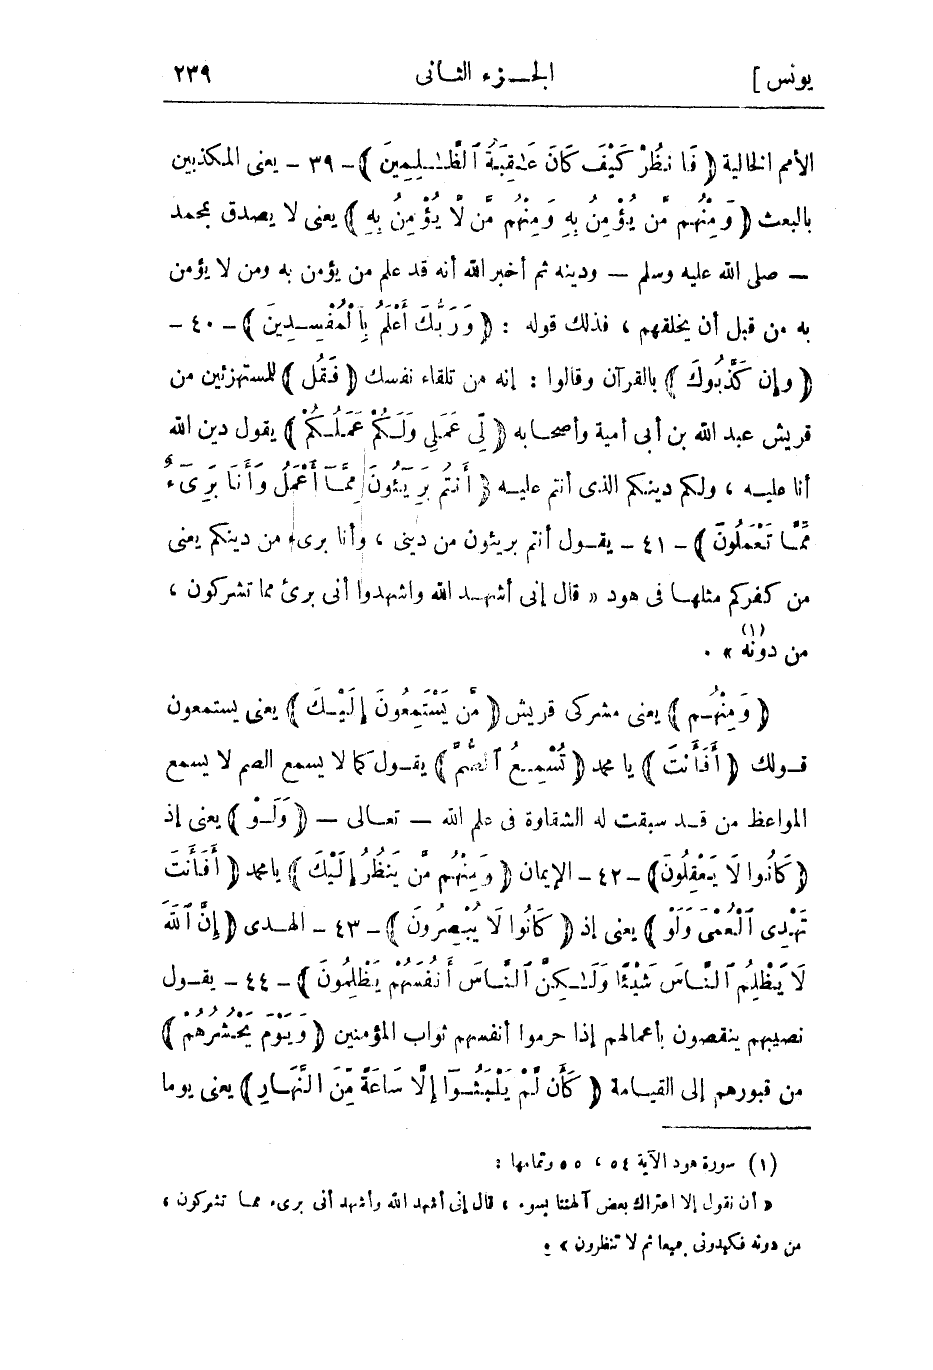 يونس ] الجـــزء الثـانى ٢٣٩
الأمم الخالية ﴿ فَانظُرْ كَيْفَ كَانَ عَـٰقِبَةُ ٱلظَّـٰلِمِينَ ﴾ـ ٣٩ ـ يعنى المكذبين
بالبعث ﴿ وَمِنْهُم مَّن يُؤْمِنُ بِهِ وَمِنْهُم مَّن لَّا يُؤْمِنُ بِهِ ﴾ يعنى لا يصدق بمحمد
— صلى الله عليه وسلم — ودينه ثم أخبر الله أنه قد علم من يؤمن به ومن لا يؤمن
به من قبل أن يخلقهم ، فذلك قوله : ﴿ وَرَبُّكَ أَعْلَمُ بِٱلْمُفْسِـدِينَ ﴾ـ ٤٠ ـ
﴿ وإِن كَذَّبُوكَ ﴾ بالقرآن وقالوا : إنه من تلقاء نفسك ﴿ فَقُل ﴾ للمستهزئين من
قريش عبد الله بن أبى أمية وأصحـابه ﴿ لِّى عَمَلِى وَلَـكُمْ عَمَلُـكُمْ ﴾ يقول دين الله
أنا عليـه ، ولكم دينكم الذى أنتم عليـه ﴿ أَنتُم بَرِيٓئُونَ مِمَّآ أَعْمَلُ وَأَنَا بَرِىٓءٌ
مِّمَّـا تَعْمَلُونَ ﴾ ـ ٤١ ـ يقـول أنتم بريئون من دينى ، وأنا برىء من دينكم يعنى
من كفركم مثلهـا فى هود « قال إنى أشهـد الله واشهدوا أنى برئ مما تشركون ،
من دونه (١) » .
﴿ وَمِنْهُـم ﴾ يعنى مشركى قريش ﴿ مَّن يَسْتَمِعُونَ إِلَيْـكَ ﴾ يعنى يستمعون
قـولك ﴿ أَفَأَنتَ ﴾ يا محمد ﴿ تُسْمِـعُ ٱلصُّمَّ ﴾ يقـول كما لا يسمع الصم لا يسمع
المواعظ من قـد سبقت له الشقاوة فى علم الله — تعـالى — ﴿ وَلَـوْ ﴾ يعنى إذ
﴿ كَانُوا لَا يَـعْقِلُونَ﴾ ـ ٤٢ ـ الإيمان ﴿ وَمِنْهُم مَّن يَنظُرُ إِلَيْكَ ﴾ يا محمد ﴿ أَفَأَنتَ
تَهْدِى ٱلْعُمْىَ وَلَوْ ﴾ يعنى إذ ﴿ كَانُوا لَا يُبْصِرُونَ ﴾ ـ ٤٣ ـ الهـدى ﴿ إِنَّ ٱللَّهَ
لَا يَظْلِمُ ٱلنَّـاسَ شَيْئًا وَلَـٰكِنَّ ٱلنَّـاسَ أَنفُسَهُمْ يَظْلِمُونَ ﴾ ـ ٤٤ ـ يقـول
نصيبهم ينقصون بأعمالهم إذا حرموا أنفسهم ثواب المؤمنين ﴿ وَيَوْمَ يَحْشُرُهُمْ ﴾
من قبورهم إلى القيـامة ﴿ كَأَن لَّمْ يَلْبَثُـوٓا إِلَّا سَاعَةً مِّنَ ٱلنَّهَـارِ ﴾ يعنى يوما
(١) سورة هود الآية ٥٤ ، ٥٥ وتمامها :
« أن نقول إلا اعتراك بعض آلهتنا بسوء ، قال إنى أشهد الله وأشهد أنى برىء ممـا تشركون ،
من دونه فكيدونى جميعا ثم لا تنظرون » .